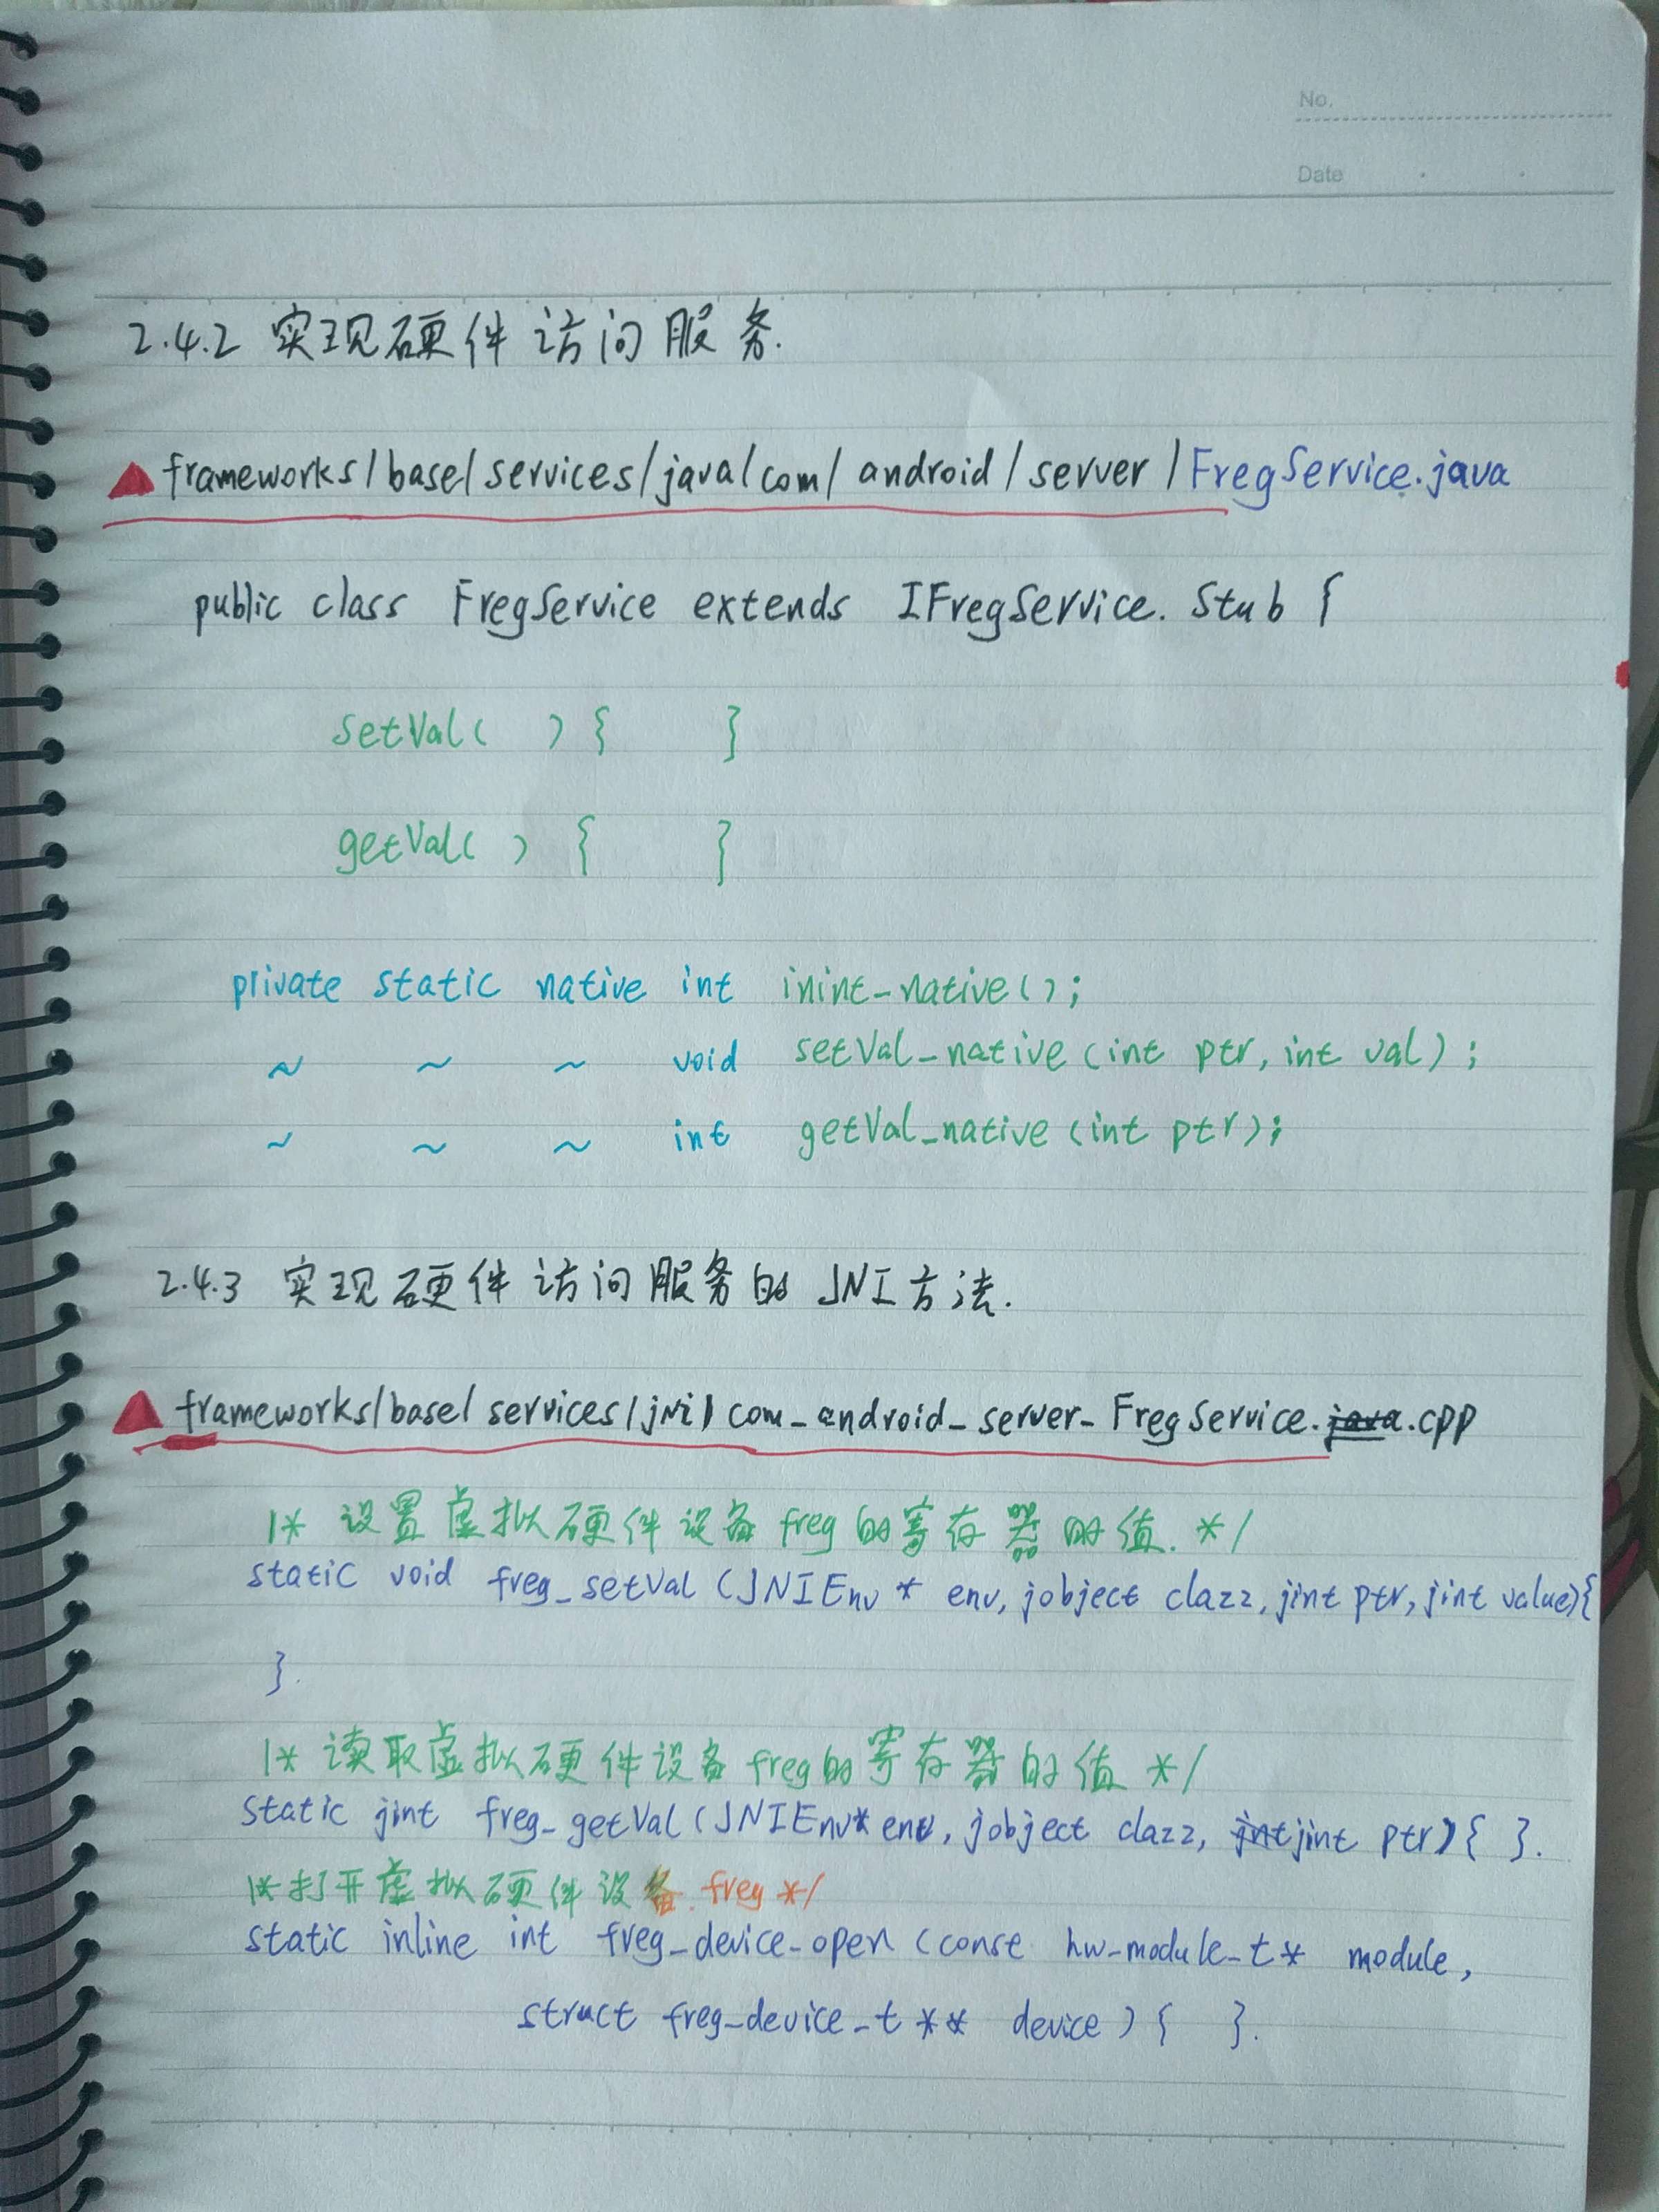 No.
Date
2.4.2 实现硬件访问服务.
frameworks/base/services/java/com/android/server/FregService.java
public class FregService extends IFregService.Stub {
setVal( ) { }
getVal( ) { }
private static native int inint_native();
~ ~ ~ void setVal_native(int ptr, int val);
~ ~ ~ int getVal_native(int ptr);
2.4.3 实现硬件访问服务的JNI方法.
frameworks/base/services/jni/com_android_server_FregService.java.cpp
/* 设置虚拟硬件设备freg的寄存器的值. */
static void freg_setVal (JNIEnv* env, jobject clazz, jint ptr, jint value){
}.
/* 读取虚拟硬件设备freg的寄存器的值 */
static jint freg_getVal (JNIEnv* env, jobject clazz, jint jint ptr){ }.
/*打开虚拟硬件设备.freg */
static inline int freg_device_open (const hw_module_t* module,
struct freg_device_t** device) { }.